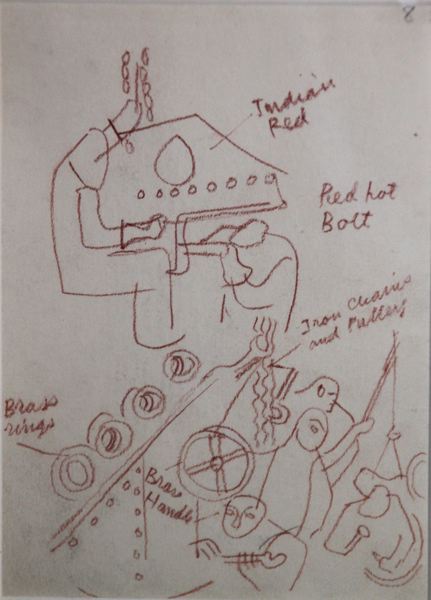 8
Indian
Red
Red hot
Bolt
Iron chains
and Pulleys
Brass
rings
Brass
Handle